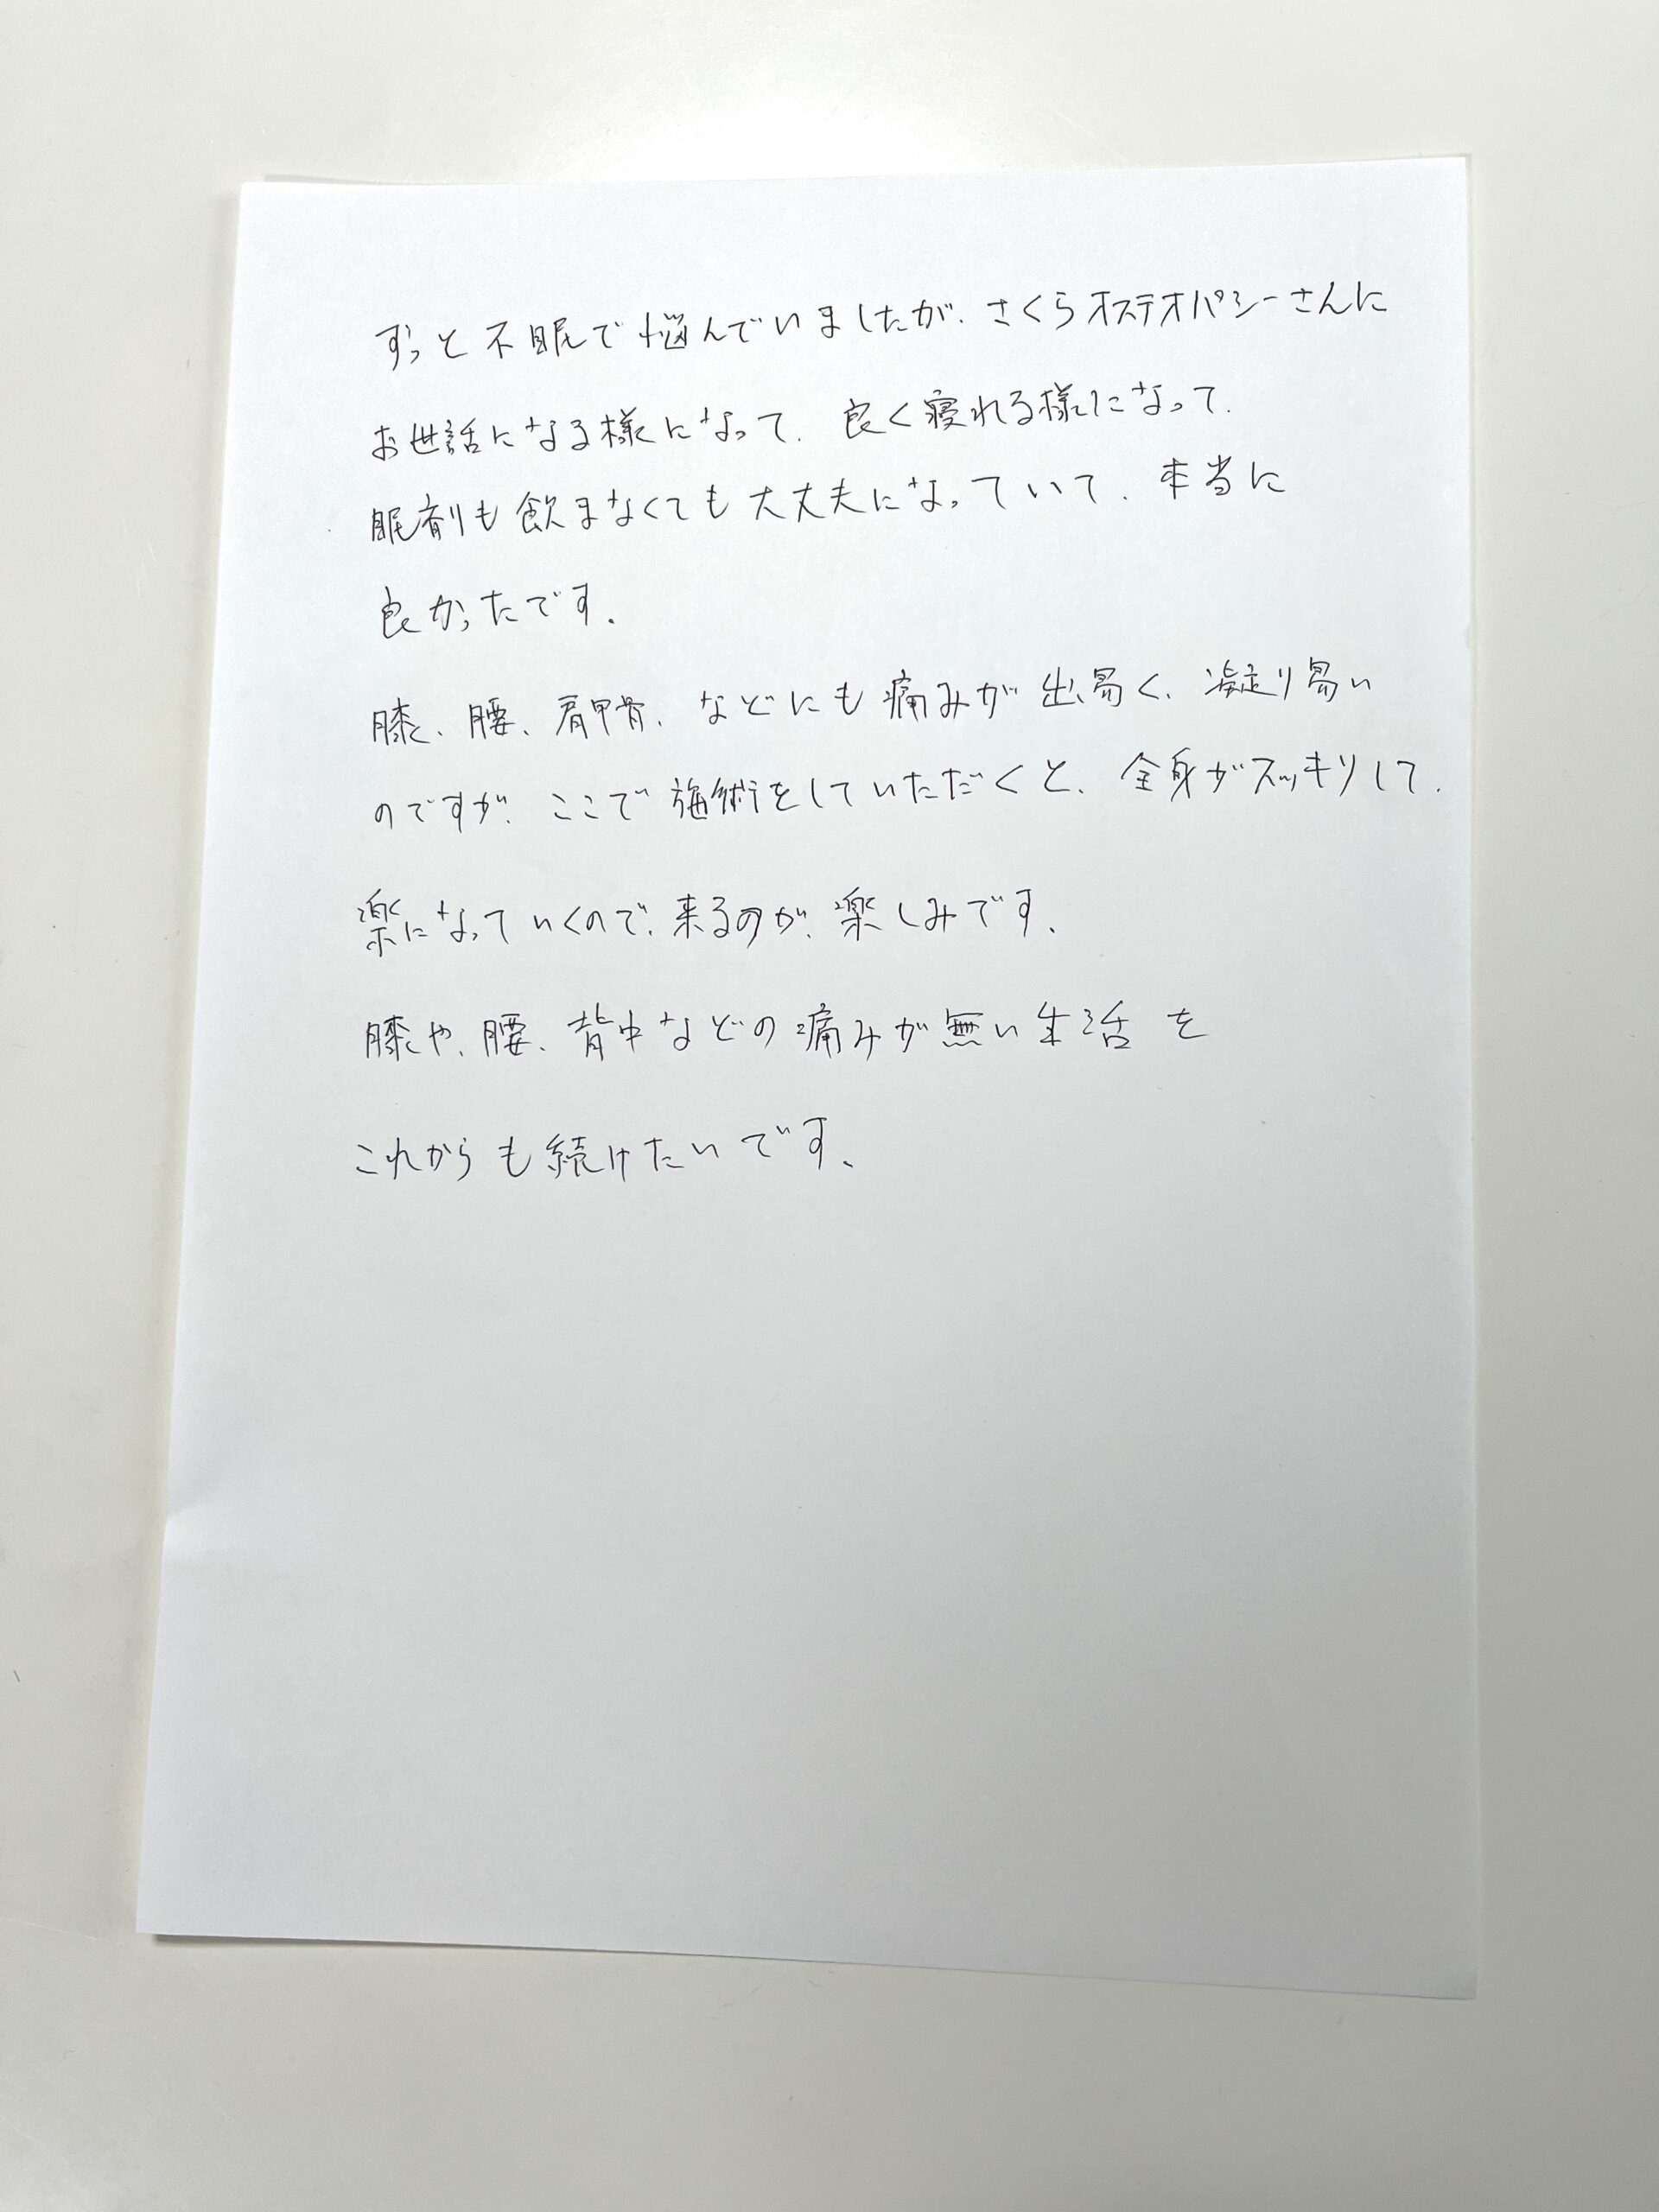 ずっと不眠で悩んでいましたが、さくらオステオパシーさんに
お世話になる様になって、良く寝れる様になって、
眠剤も飲まなくても大丈夫になっていて、本当に
良かったです。
膝、腰、肩甲骨、などにも痛みが出易く、凝り易い
のですが、ここで施術をしていただくと、全身がスッキリして、
楽になっていくので、来るのが、楽しみです。
膝や、腰、背中などの痛みが無い生活を
これからも続けたいです。